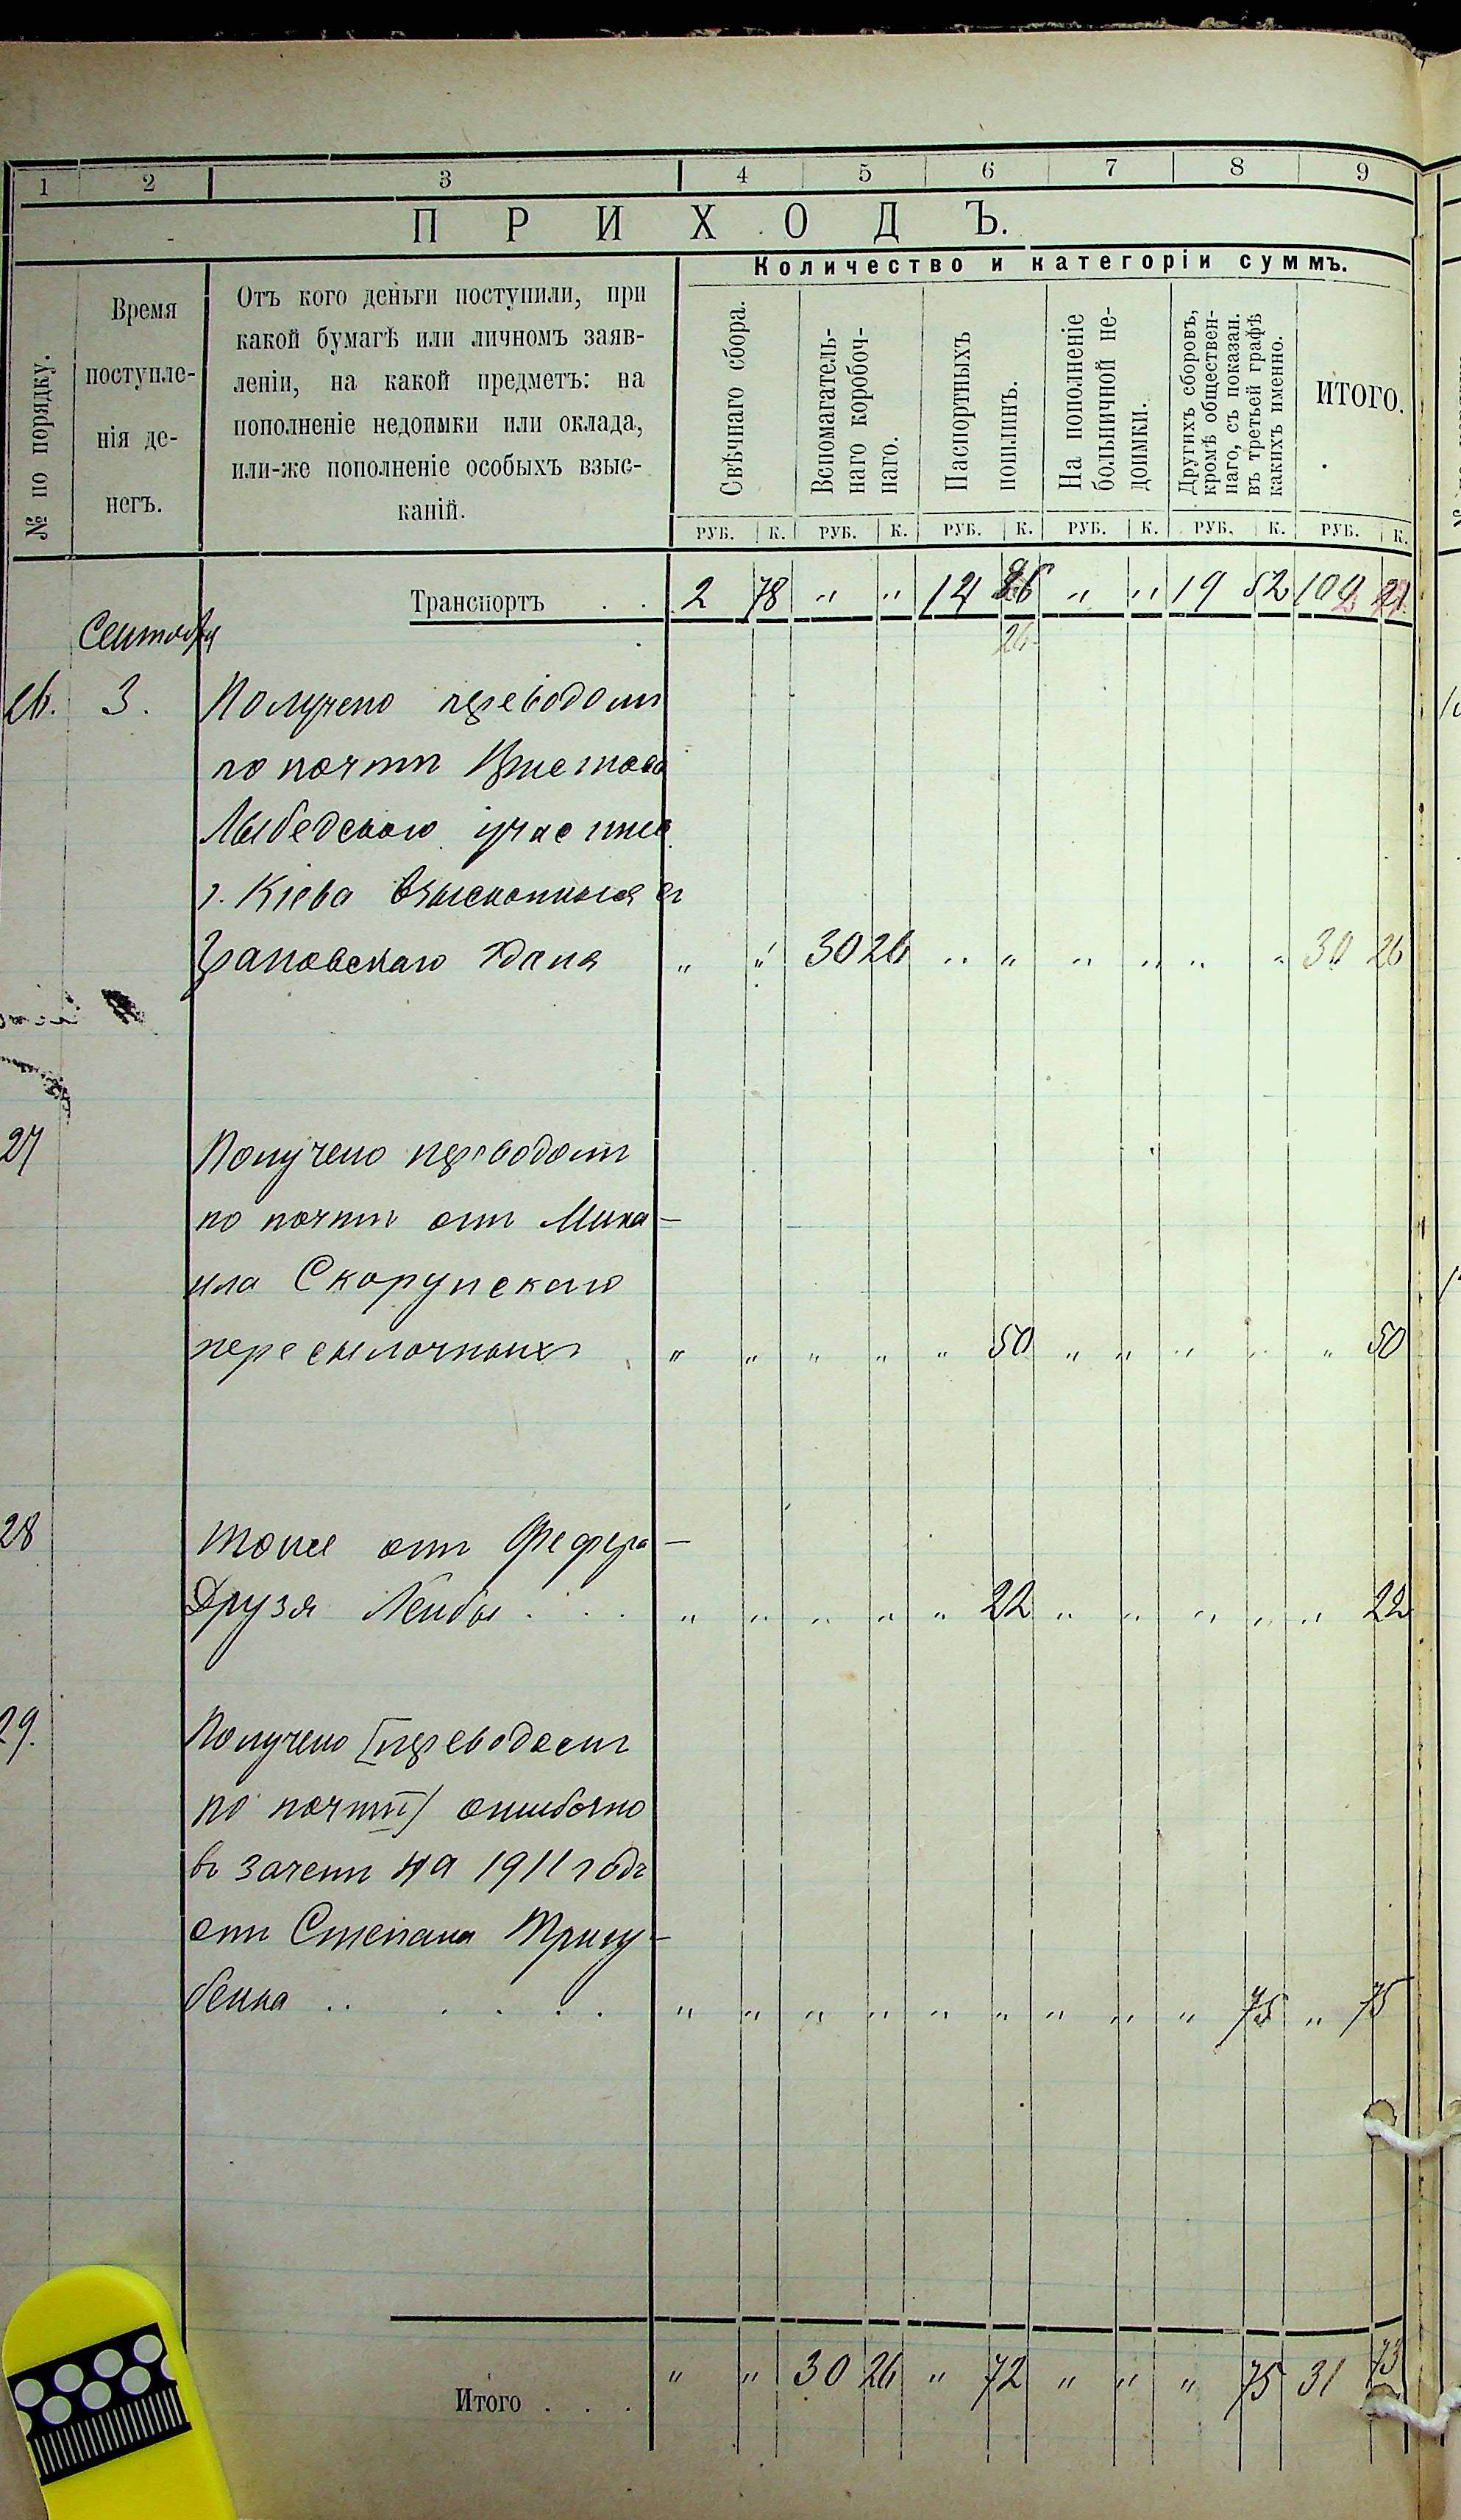 1 2 3 4 5 6 7 8 9
ПРИХОДЪ.
Количество и категоріи суммъ.
№ по порядку.
Время
поступле-
нія де-
негъ.
Отъ кого деньги поступили, при
какой бумагѣ или личномъ заяв-
леніи, на какой предметъ: на
пополненіе недоимки или оклада,
или-же пополненіе особыхъ взыс-
каній.
Свѣчнаго сбора.
Вспомагатель-
наго коробоч-
наго.
Паспортныхъ
пошлинъ.
На пополненіе
больничной не-
доимки.
Другихъ сборовъ,
кромѣ обществен-
наго, съ показан.
въ третьей графѣ
какихъ именно.
ИТОГО.
РУБ. К. РУБ. К. РУБ. К. РУБ. К. РУБ. К. РУБ. К.
Транспортъ . . 2 78 " " " " 19 52
Сентября
26. 3. Получено переводомъ
по почтѣ Пристава
Лыбедского участка
г. Кіева взысканныя съ
Грановскаго Дана " " 30 26 " " " " " " 30 26
27 Получено переводомъ
по почтѣ отъ Миха-
ила Скорупскаго
пересылочныхъ " " " " " 50 " " " " " 50
28 Тоже отъ Фефера-
Друзя Лейбы . . . " " " " " 22 " " " " " 22
29. Получено [переводомъ
по почтѣ) ошибочно
въ зачетъ на 1911 годъ
отъ Степана Тригу-
бенка . . . . . . " " " " " " " " " 75 " 75
Итого . . . " " 30 26 " 72 " " " 75 31 73